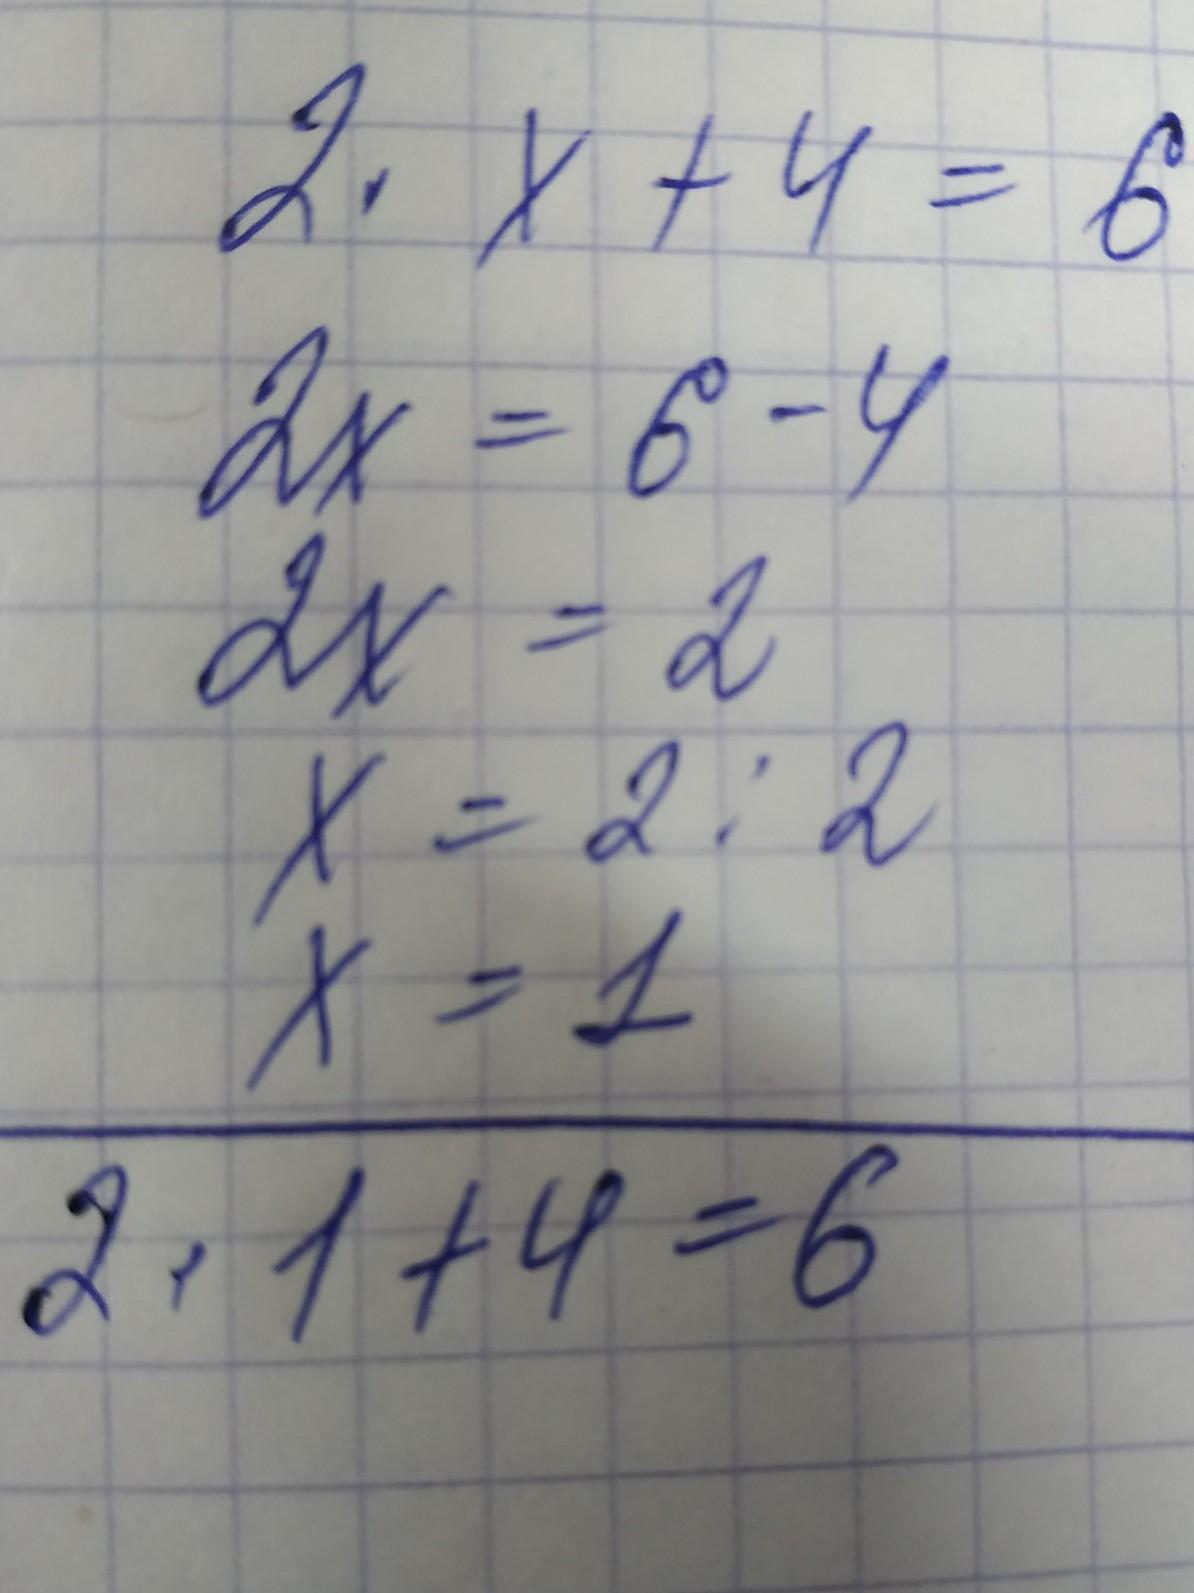 2 · x + 4 = 6
2x = 6 - 4
2x = 2
x = 2 : 2
x = 1
2 · 1 + 4 = 6